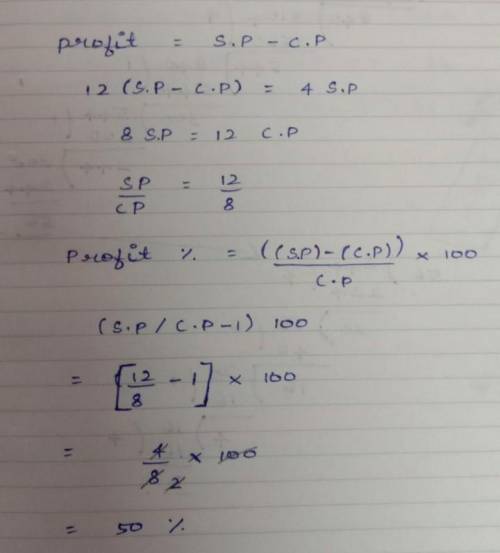 Profit = S.P - C.P
12 (S.P - C.P) = 4 S.P
8 S.P = 12 C.P
SP/CP = 12/8
Profit % = ((S.P)-(C.P))/C.P × 100
(S.P / C.P - 1) 100
= [12/8 - 1] × 100
= 4/8 2 × 100
= 50 %